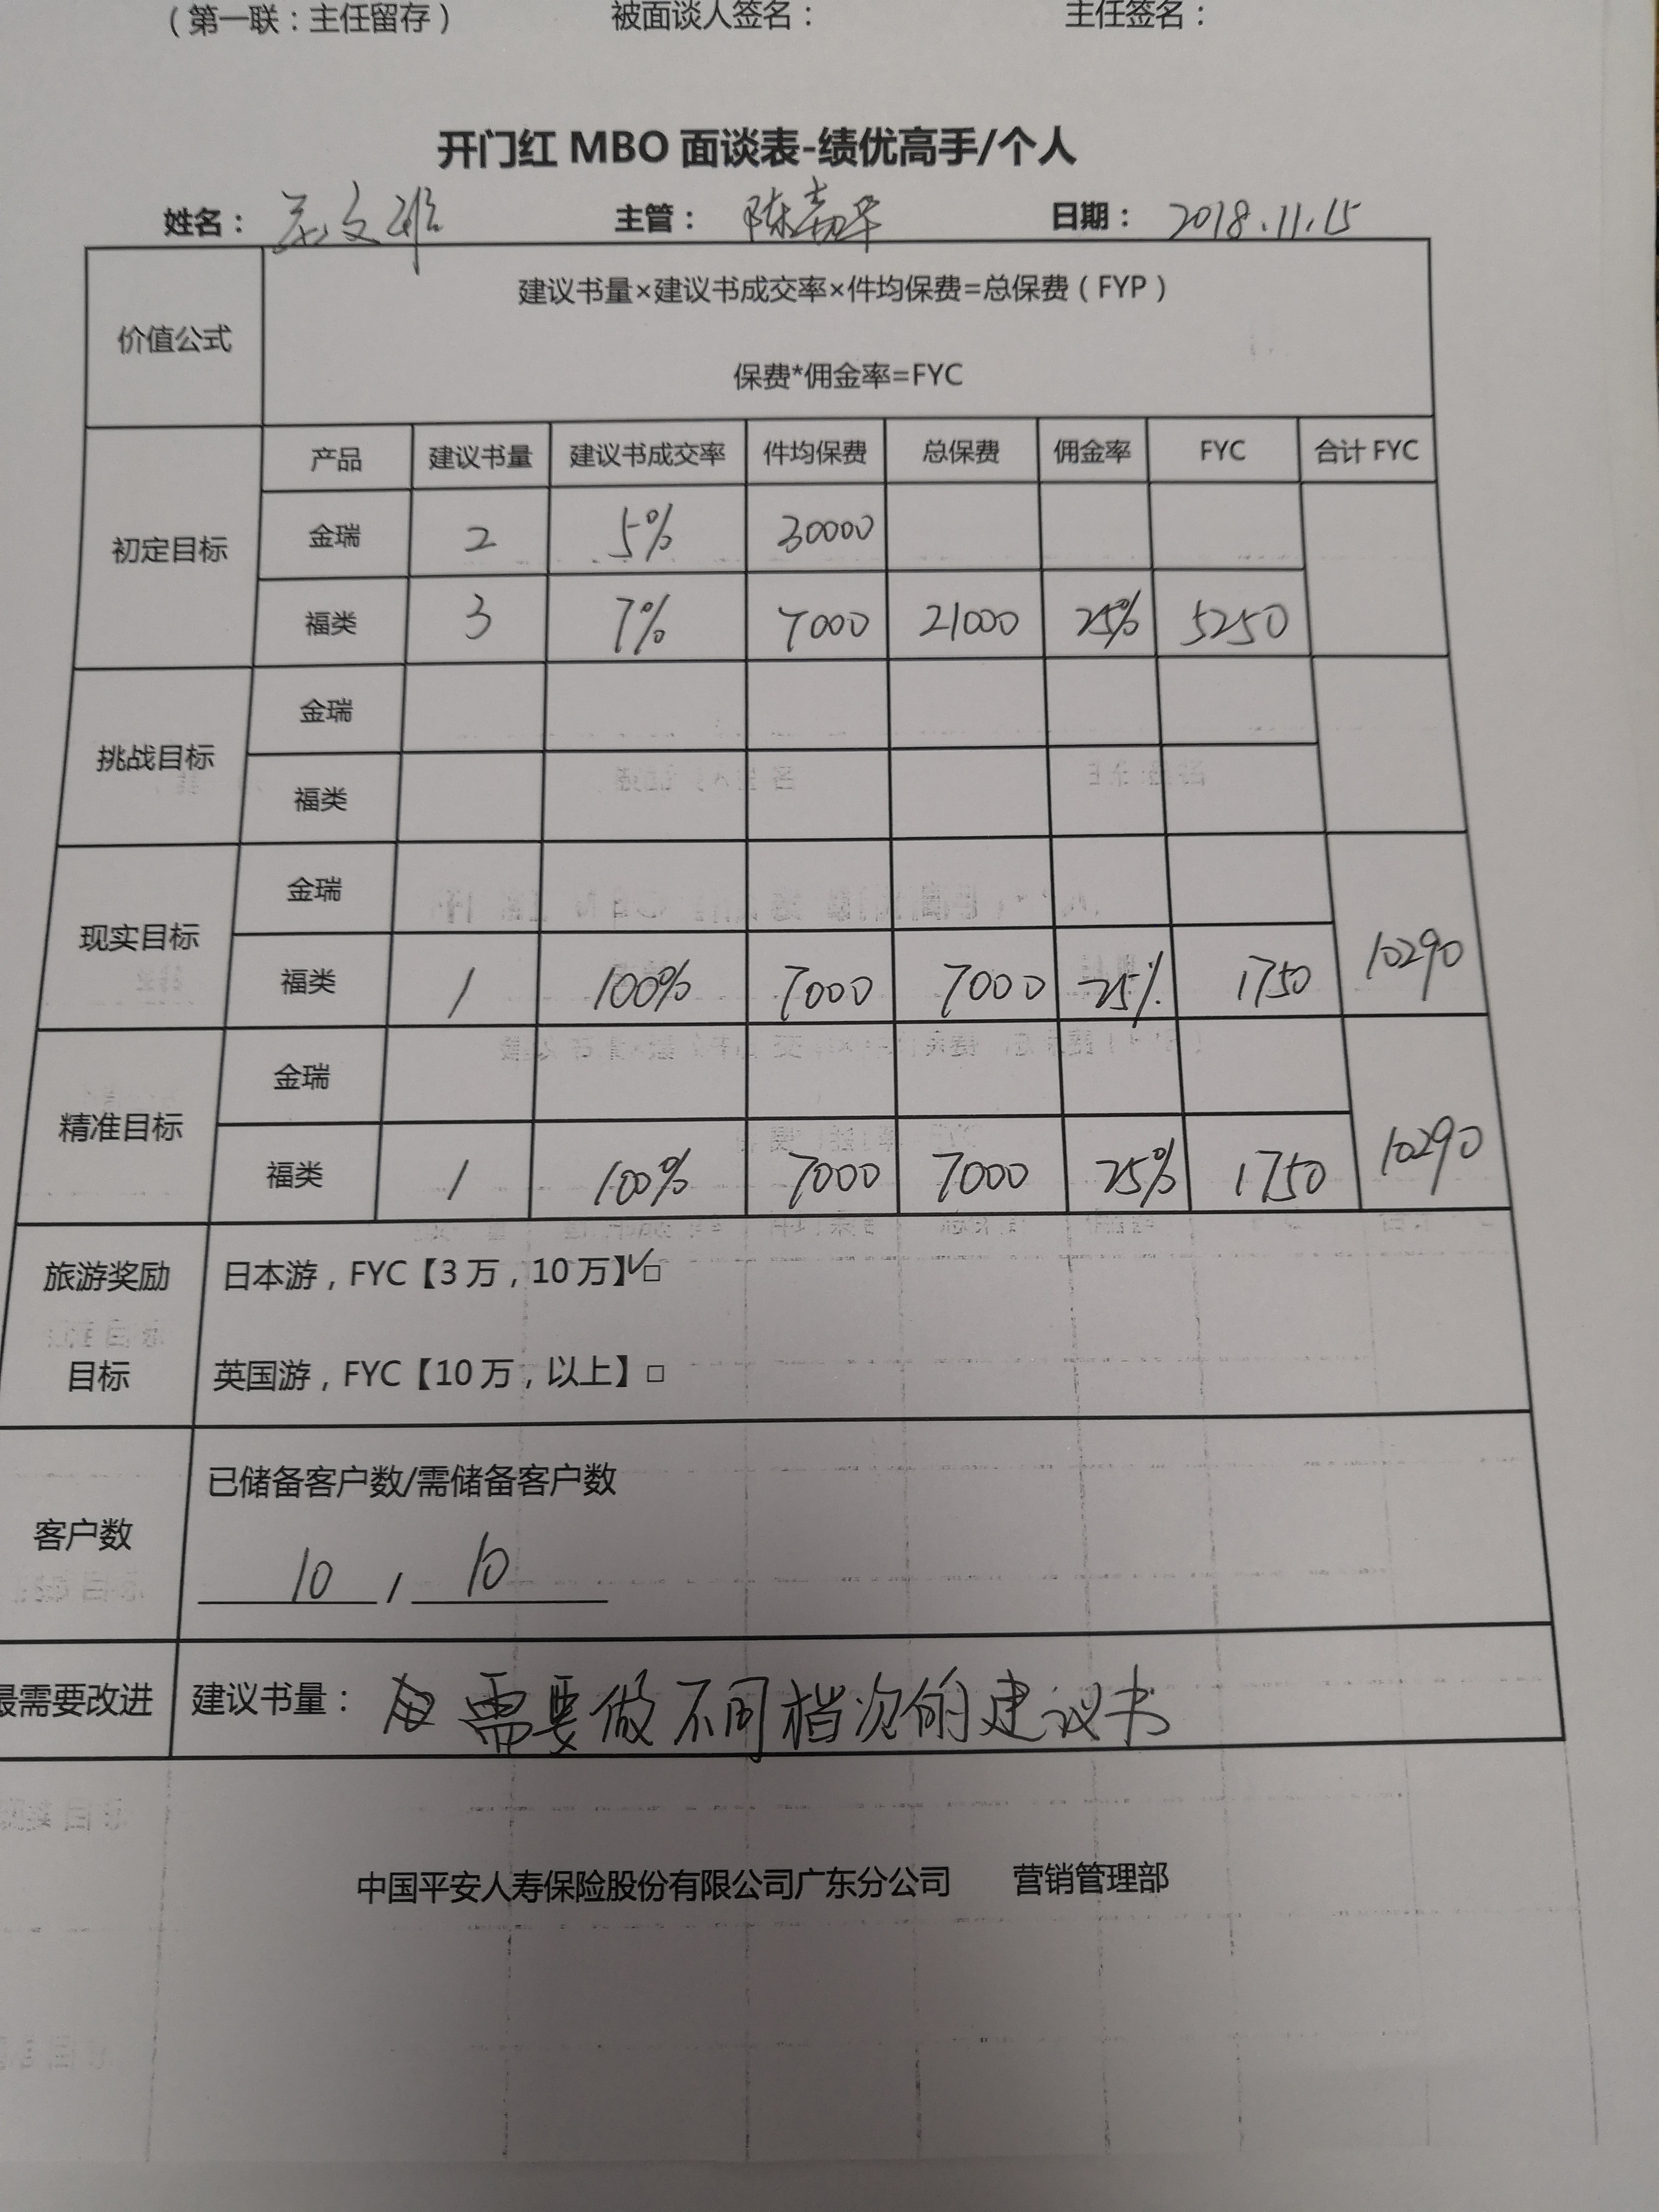 （第一联：主任留存） 被面谈人签名： 主任签名：
开门红 MBO 面谈表-绩优高手/个人
姓名： 主管：陈 日期：2018.11.15
价值公式
建议书量×建议书成交率×件均保费=总保费（FYP）
保费*佣金率=FYC
产品 建议书量 建议书成交率 件均保费 总保费 佣金率 FYC 合计 FYC
初定目标
金瑞 2 5% 30000
福类 3 7% 7000 21000 25% 5250
挑战目标
金瑞
福类
现实目标
金瑞
福类 1 100% 7000 7000 25% 1750 10290
精准目标
金瑞
福类 1 100% 7000 7000 25% 1750 10290
旅游奖励
目标
日本游，FYC【3 万，10 万】✓□
英国游，FYC【10 万，以上】□
客户数
已储备客户数/需储备客户数
10 / 10
最需要改进 建议书量：需要做不同档次的建议书
中国平安人寿保险股份有限公司广东分公司 营销管理部